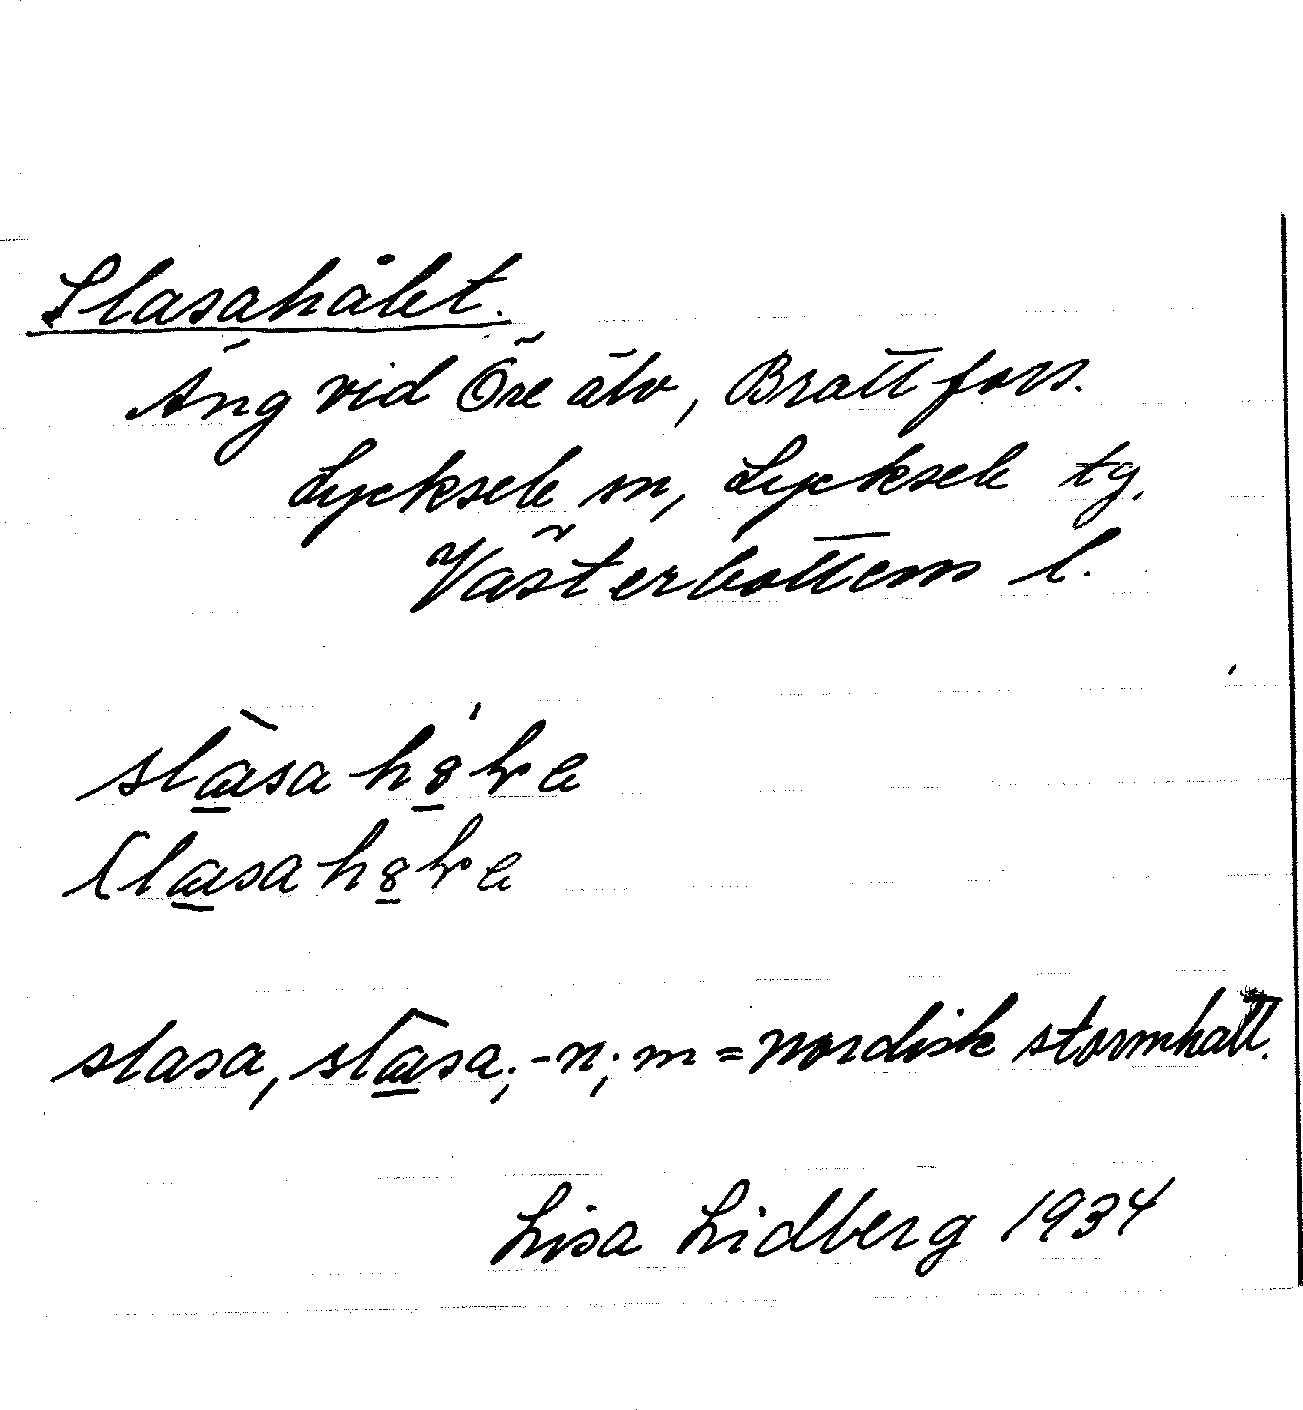 Slasahålet.
Äng vid Öre älv, Brattfors.
Lycksele sn, Lycksele tg.
Västerbottens l.
slasa
slasa, slasa; -n; m = nordisk stormhatt.
Lisa Lidberg 1934